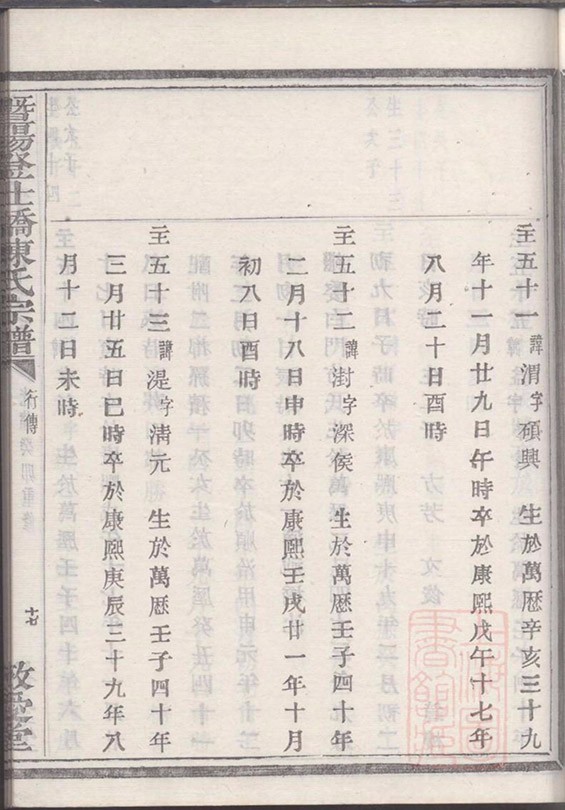 主五十一諱渭字碩興 生於萬歷辛亥三十九
年十一月廿九日午時卒於康熙戊午十七年
八月二十日酉時
主五十二諱澍字深侯 生於萬歷壬子四十年
二月十八日申時卒於康熙壬戌廿一年十月
初八日酉時
主五十三諱湜字清元 生於萬歷壬子四十年
三月廿五日巳時卒於康熙庚辰三十九年八
月十二日未時
暨陽登仕橋陳氏宗譜
行傳
敬愛堂